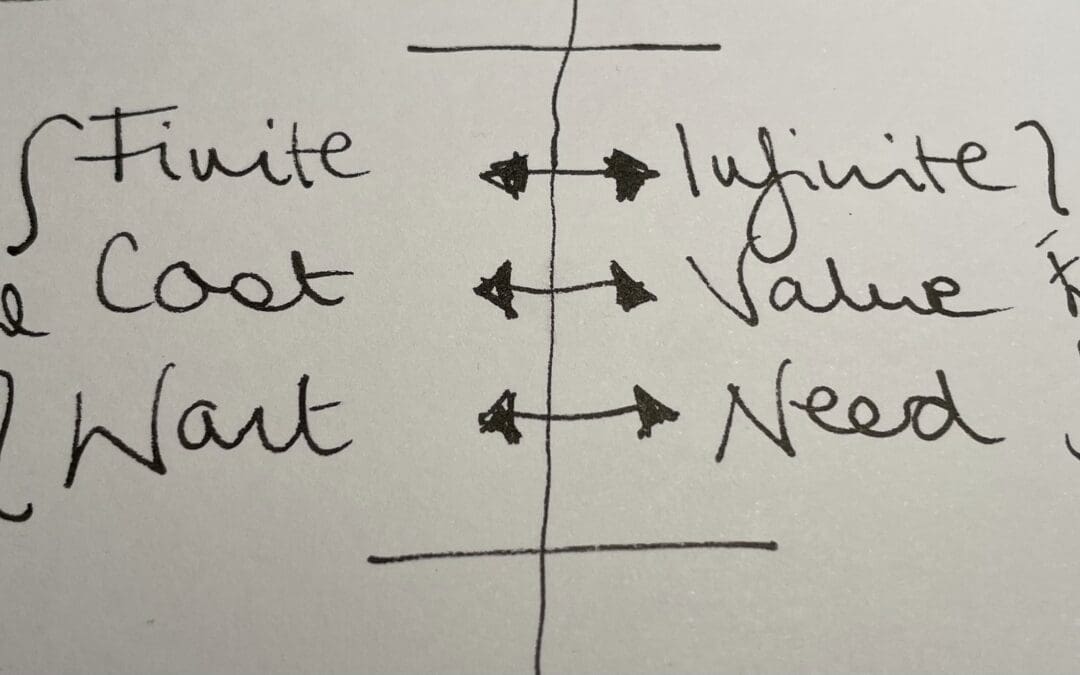 Finite Infinite
Cost Value
Want Need